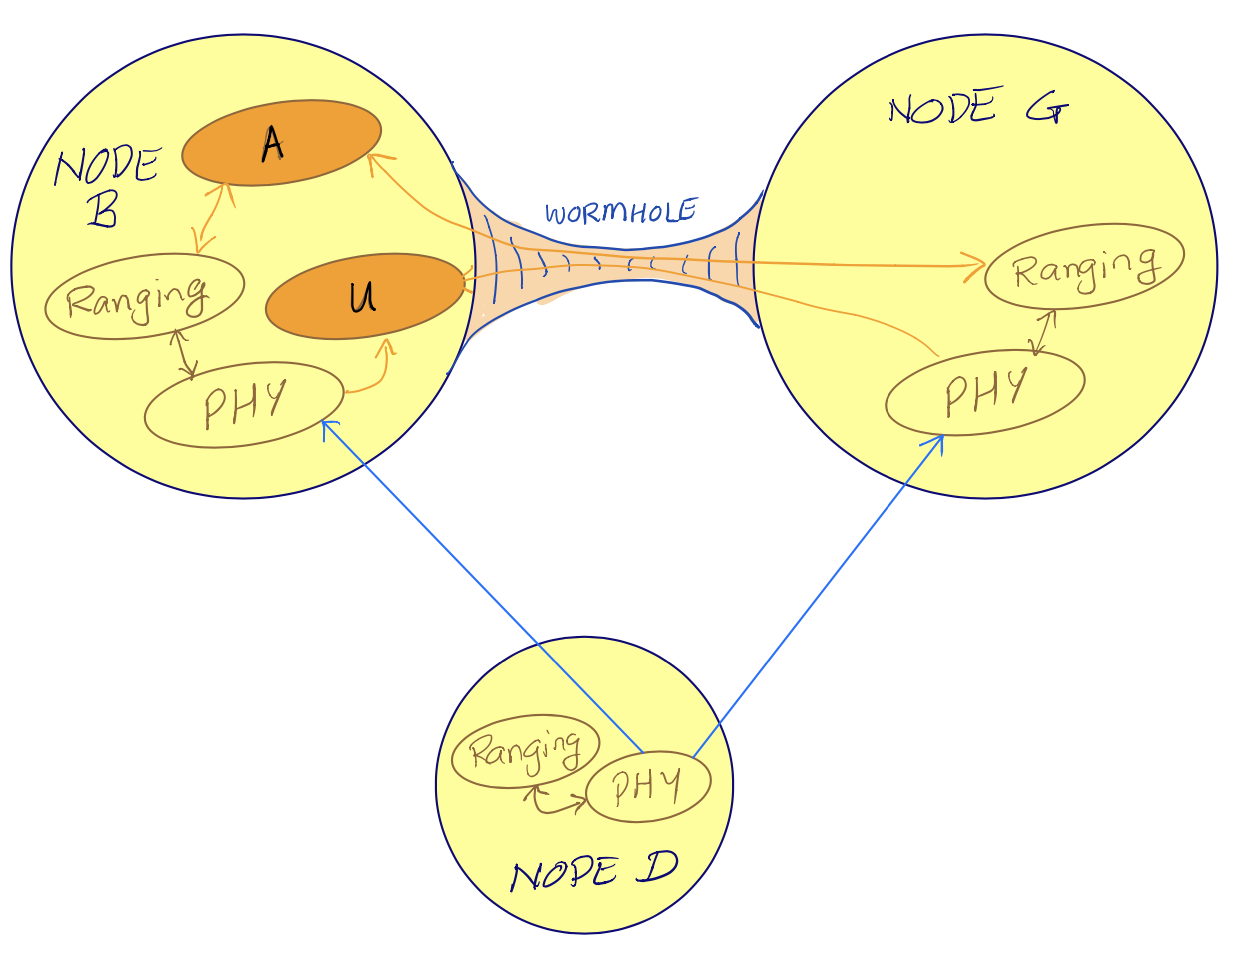 NODE
B
A
Ranging
U
PHY
WORMHOLE
NODE G
Ranging
PHY
Ranging
PHY
NODE D